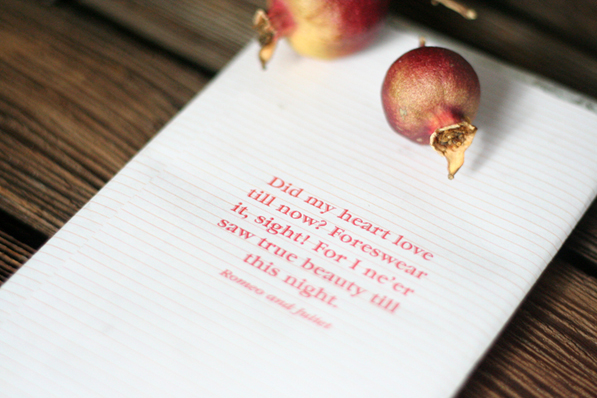 Did my heart love
till now? Foreswear
it, sight! For I ne'er
saw true beauty till
this night.
Romeo and Juliet